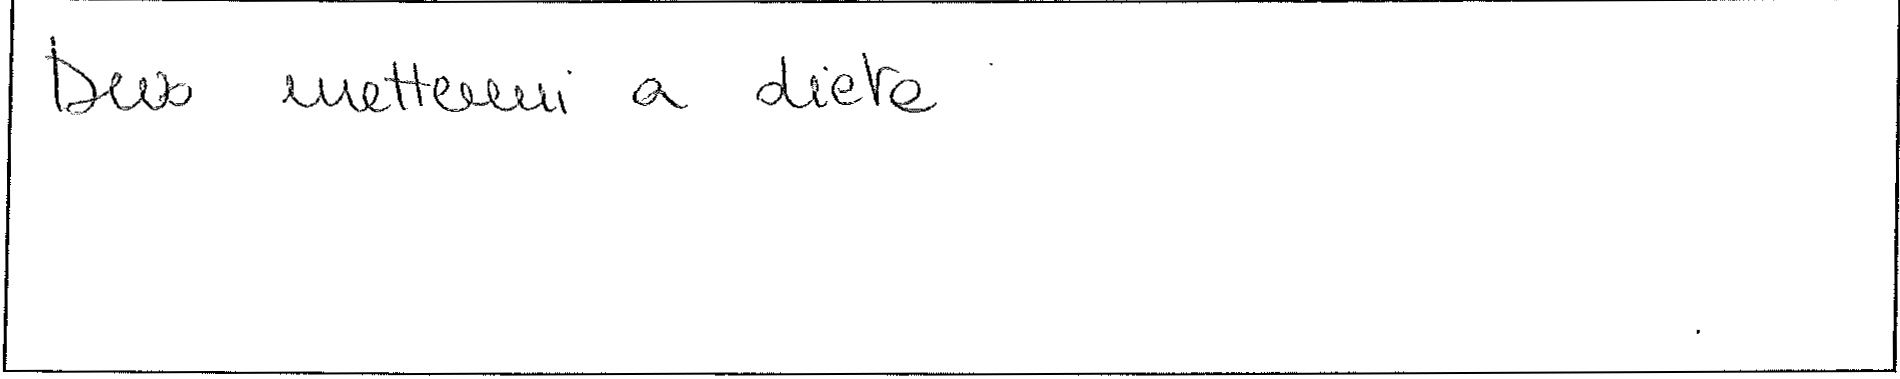 Devo mettermi a dieta